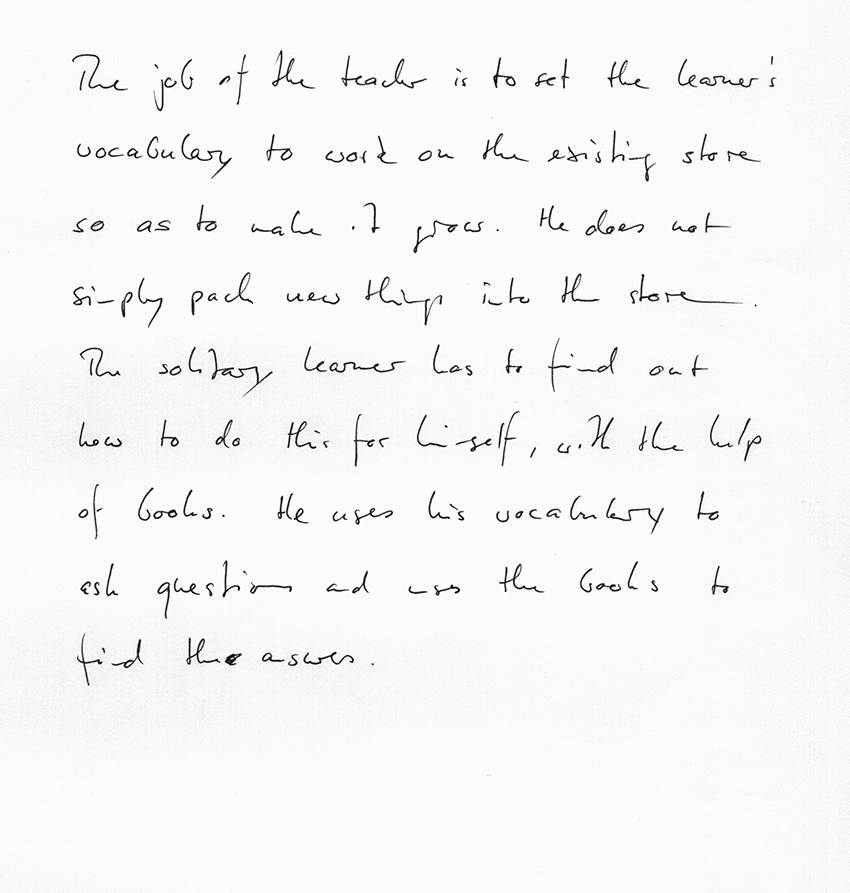 The job of the teacher is to set the learner's
vocabulary to work on the existing store
so as to make it grow. He does not
simply pack new things into the store.
The solitary learner has to find out
how to do this for himself, with the help
of books. He uses his vocabulary to
ask questions and uses the books to
find the answers.